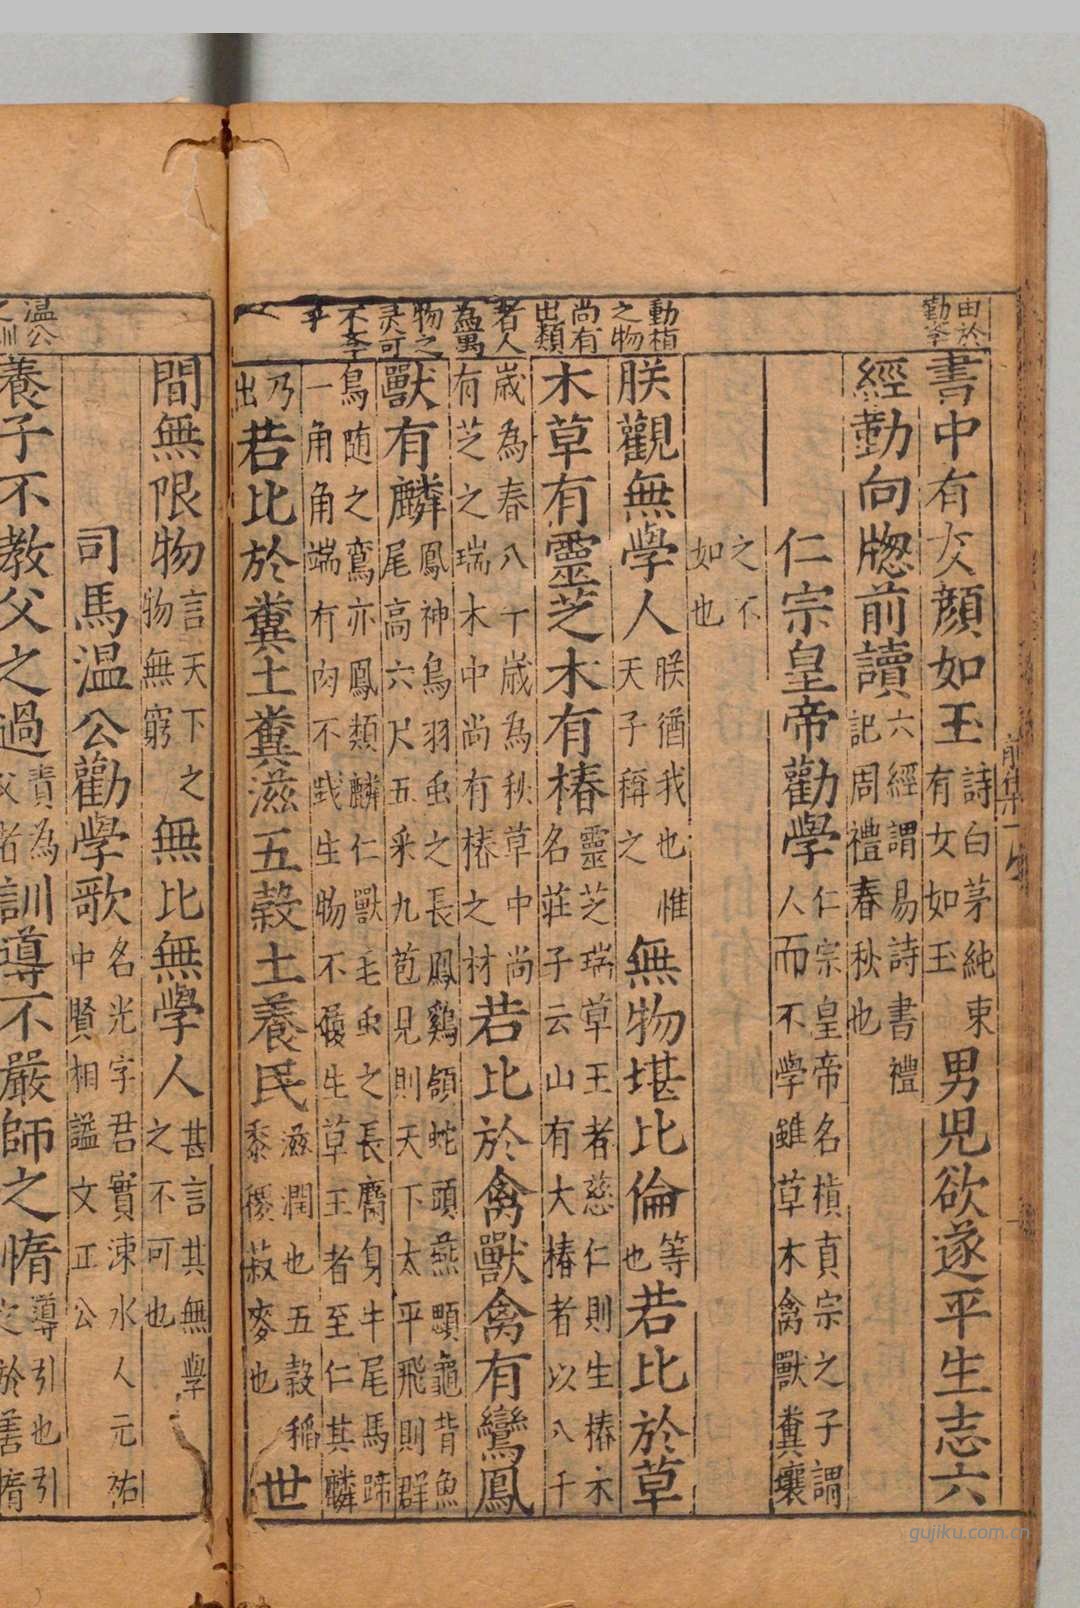 由於
勤學
書中有女顔如玉詩白茅純束有女如玉男児欲遂平生志六
經勤向牕前讀六經謂易詩書禮記周禮春秋也
仁宗皇帝勸學仁宗皇帝名楨真宗之子謂人而不學雖草木禽獸糞壤
之不如也
動植
之物
尚有
出類
者人
為萬
物之
灵可
不孝
乎
朕觀無學人朕猶我也惟天子稱之無物堪比倫等也若比於草
木草有靈芝木有椿靈芝瑞草王者慈仁則生椿木名莊子云山有大椿者以八千
歲為春八千歲為秋草中尚有芝之瑞木中尚有椿之材若比於禽獸禽有鸞鳳
獸有麟鳳神鳥羽虫之長鳳鷄領蛇頭燕頤龜背魚尾高六尺五采九苞見則天下太平飛則群
鳥随之鸞亦鳳類麟仁獸毛虫之長麕身牛尾馬蹄一角角端有肉不践生物不履生草王者至仁其麟
乃出若比於糞土糞滋五穀土養民滋潤也五穀稻黍稷菽麥也世
間無限物言天下之物物無窮無比無學人甚言其無學之不可也
司馬温公勸學歌名光字君實涑水人元祐中賢相謚文正公
温公
之訓
養子不教父之過責為父者訓導不嚴師之惰導引也引之於善惰
前集一
gujiku.com.cn